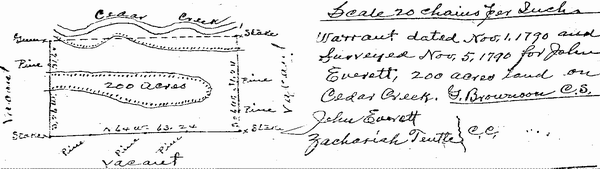 Cedar Creek
Gum
Stake
Pine
200 acres
Pine
Pine
Stake
N 64 W - 63.24
Stake
Pine
Pine
Pine
Vacant
Vacant
Vacant
Scale 20 chains per Inch
Warrant dated Nov. 1, 1790 and
Surveyed Nov. 5, 1790 for John
Everett, 200 acres land on
Cedar Creek. G. Brownson C.S.
John Everett
Zachariah Teutle } C.C.